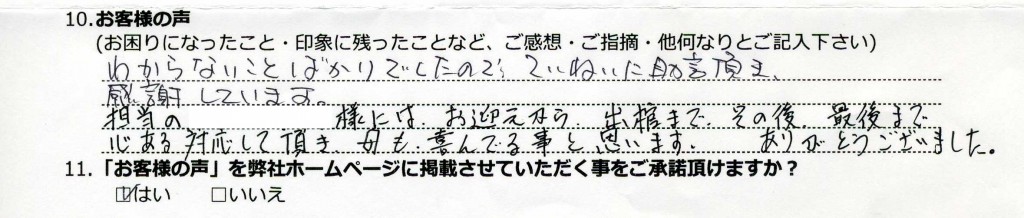 10.お客様の声
(お困りになったこと・印象に残ったことなど、ご感想・ご指摘・他何なりとご記入下さい)
わからないことばかりでしたので、ていねいに助言頂き、
感謝しています。
担当の 様には、お迎えから、出棺まで、その後、最後まで
心ある対応して頂き 母も、喜んでる事と思います。 ありがとうございました。
11.「お客様の声」を弊社ホームページに掲載させていただく事をご承諾頂けますか?
☑はい □いいえ